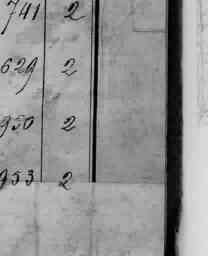 741 2
629 2
950 2
953 2